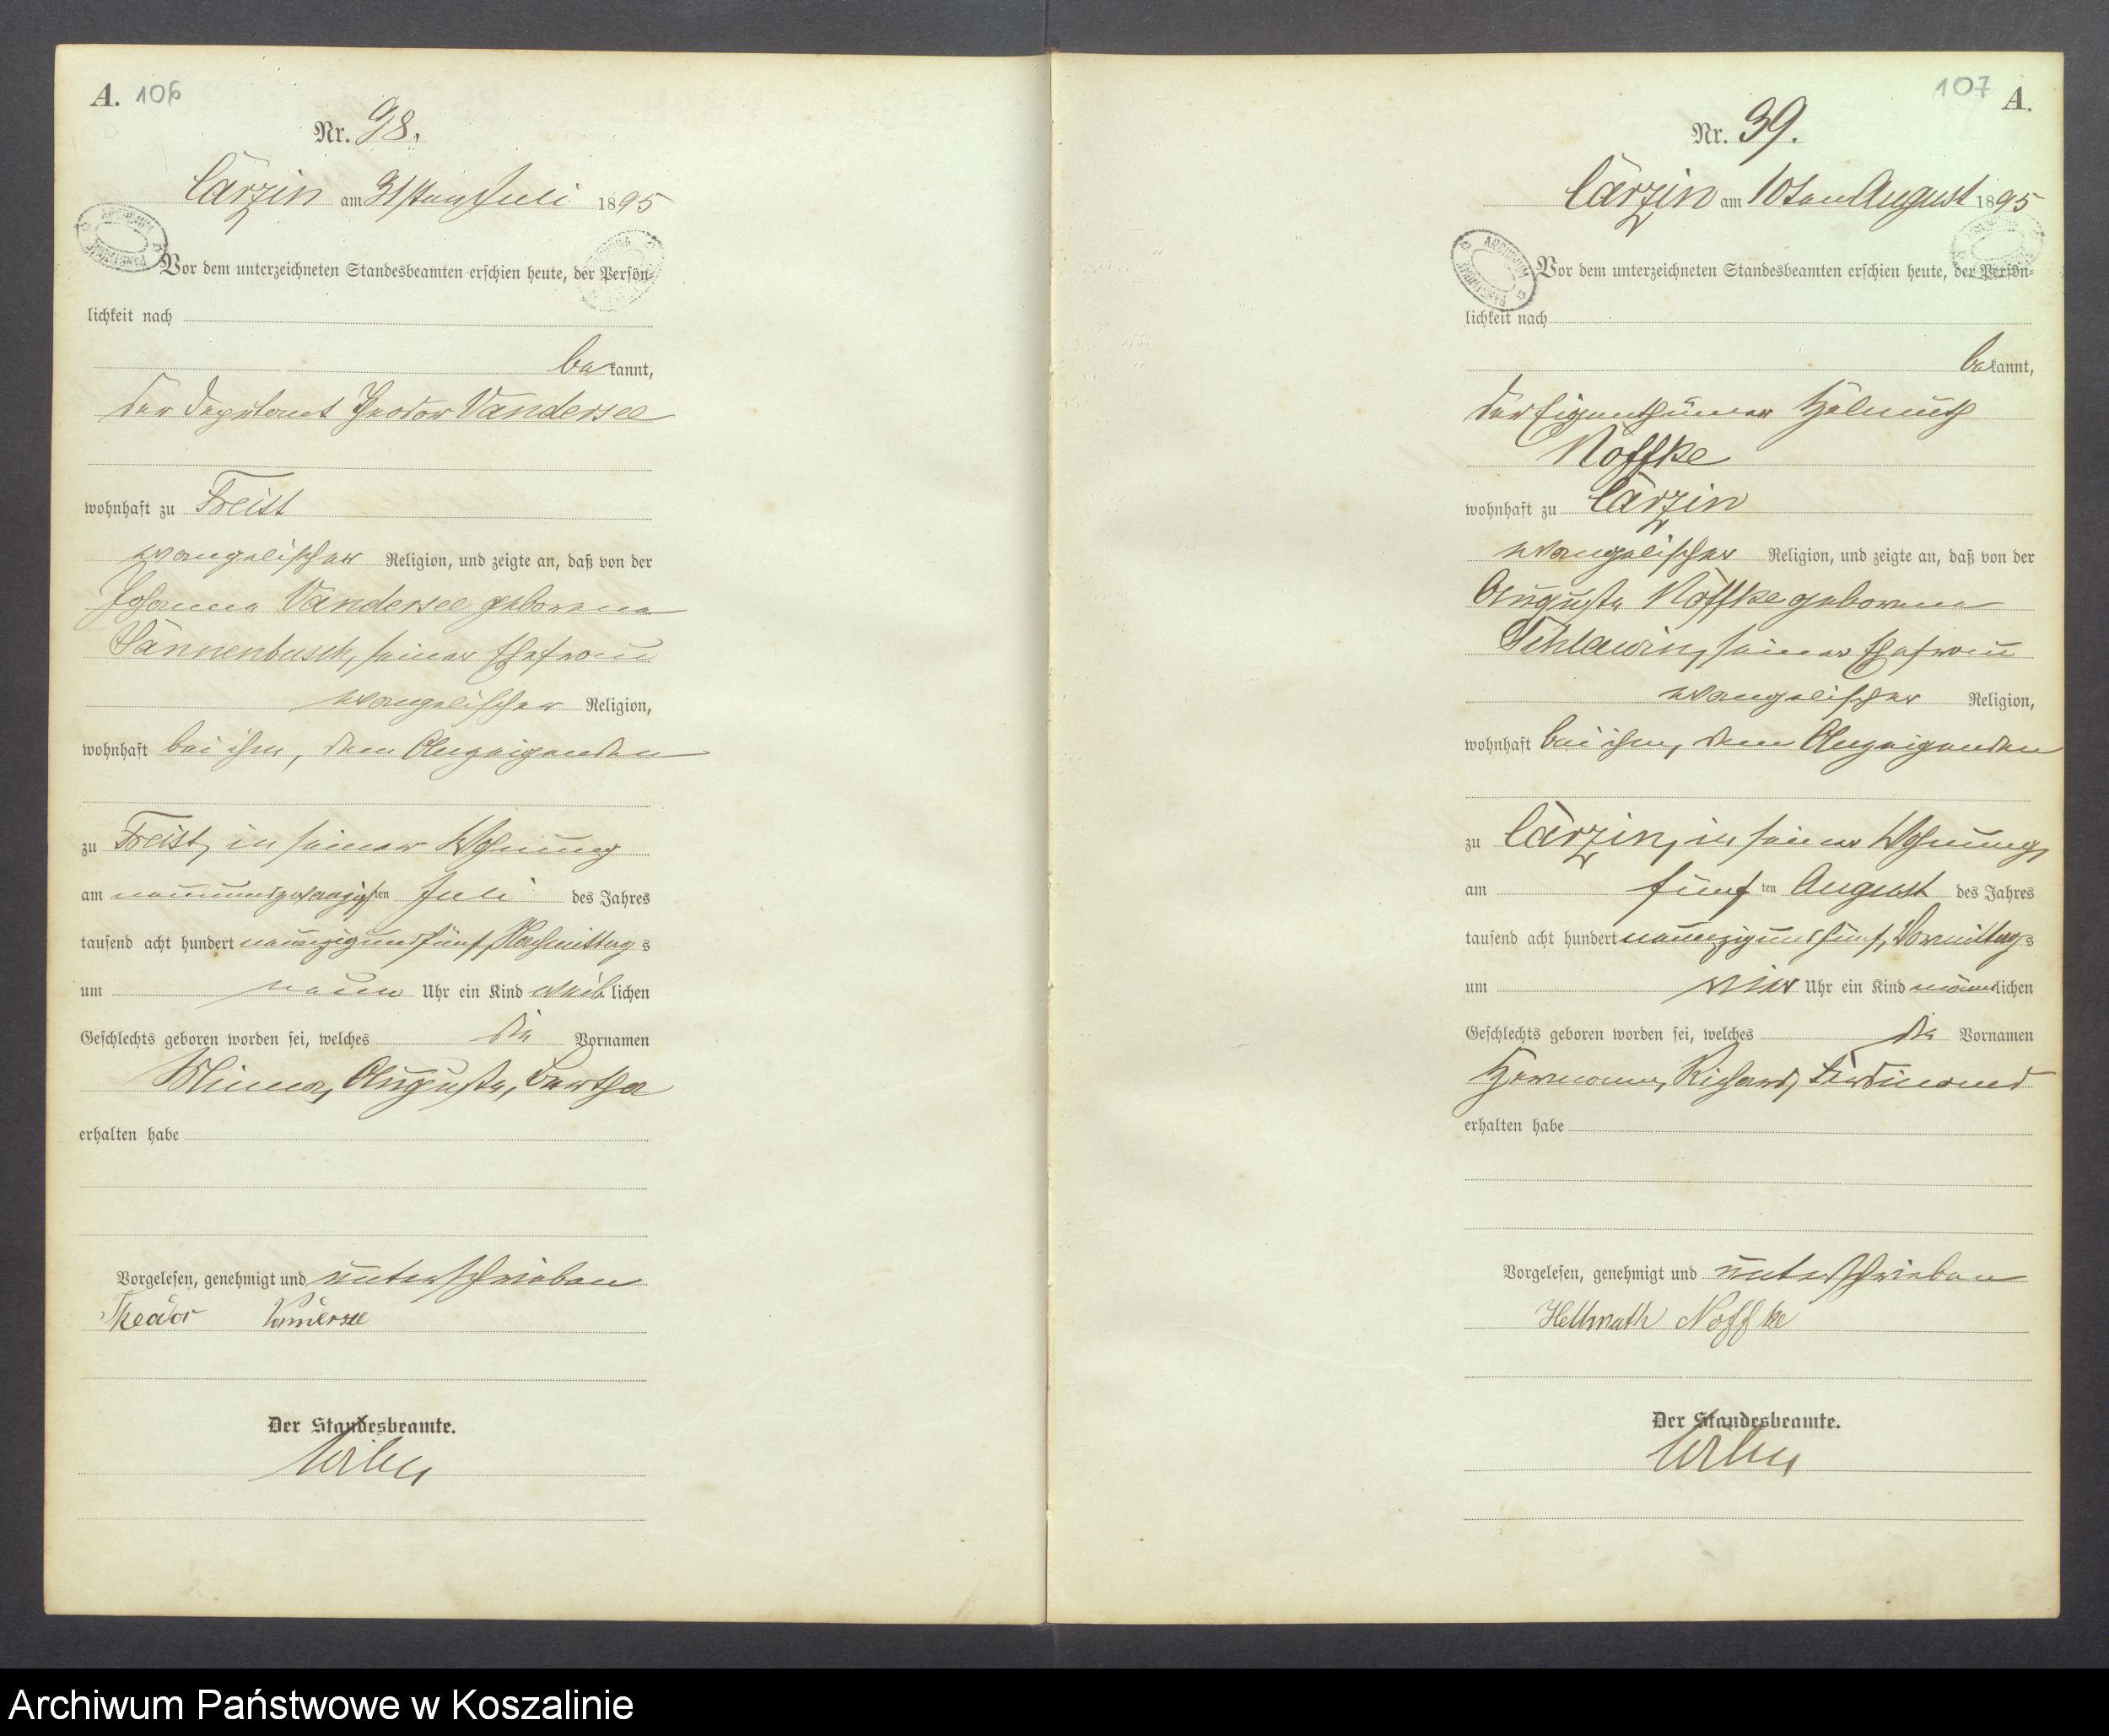 A. 106
Nr. 98.
Carzin am 31sten Juli 1895
ARCHIWUM PAŃSTWOWE
Vor dem unterzeichneten Standesbeamten erschien heute, der Persön=
lichkeit nach
bekannt,
der Deputant Theodor Vandersee
wohnhaft zu Freist
evangelischer Religion, und zeigte an, daß von der
Johanna Vandersee geborene
Dannenbusch, seiner Ehefrau
evangelischer Religion,
wohnhaft bei ihm, dem Anzeigenden
zu Freist, in seiner Wohnung
am neunundzwanzigsten Juli des Jahres
tausend acht hundert neunzig und fünf, Nachmittags
um neun Uhr ein Kind weiblichen
Geschlechts geboren worden sei, welches die Vornamen
Minna, Auguste, Bertha
erhalten habe
Vorgelesen, genehmigt und unterschrieben
Theodor
Der Standesbeamte.
107 A.
Nr. 39.
Carzin am 10ten August 1895
ARCHIWUM PAŃSTWOWE
Vor dem unterzeichneten Standesbeamten erschien heute, der Persön=
lichkeit nach
bekannt,
der Eigenthümer Helmuth
Noffke
wohnhaft zu Carzin
evangelischer Religion, und zeigte an, daß von der
Auguste Noffke geborene
Schlawin, seiner Ehefrau
evangelischer Religion,
wohnhaft bei ihm, dem Anzeigenden
zu Carzin, in seiner Wohnung,
am fünften August des Jahres
tausend acht hundert neunzig und fünf, Vormittags
um vier Uhr ein Kind männlichen
Geschlechts geboren worden sei, welches die Vornamen
Hermann, Richard, Ferdinand
erhalten habe
Vorgelesen, genehmigt und unterschrieben
Hellmuth Noffke
Der Standesbeamte.
Archiwum Państwowe w Koszalinie